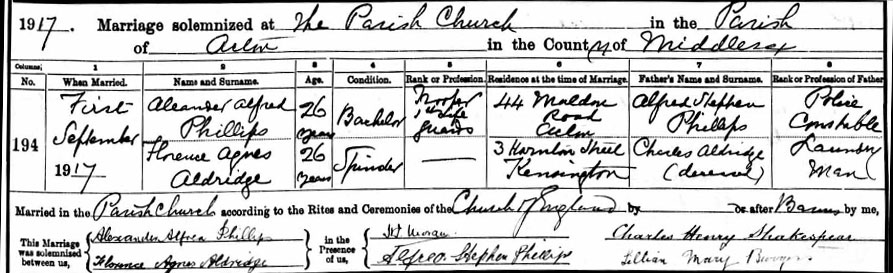 1917. Marriage solemnized at The Parish Church in the Parish
of Acton in the County of Middlesex
Columns: 1 2 3 4 5 6 7 8
No. When Married. Name and Surname. Age. Condition. Rank or Profession. Residence at the time of Marriage. Father's Name and Surname. Rank or Profession of Father
194
First
September
1917
Alexander Alfred
Phillips
26
years
Bachelor
Trooper
1st Life
Guards
44 Maldon
Road
Acton
Alfred Stephen
Phillips
Police
Constable
Florence Agnes
Aldridge
26
years
Spinster
———
3 Street
Kensington
Charles Aldridge
(deceased)
Laundry
Man
Married in the Parish Church according to the Rites and Ceremonies of the Church of England by or after Banns by me,
This Marriage
was solemnized
between us,
Alexander Alfred Phillips
Florence Agnes Aldridge
in the
Presence
of us,
Moran
Alfred Stephen Phillips
Charles Henry Shakespear
Lillian Mary